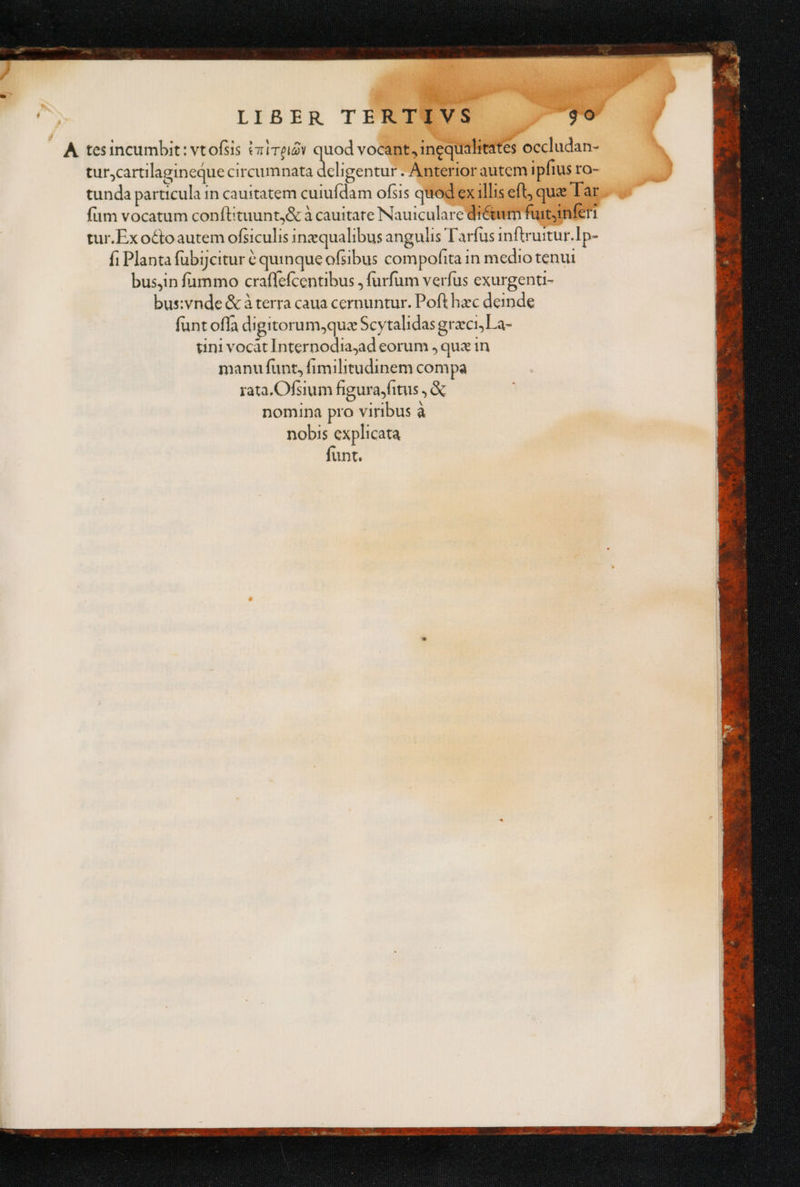 LIBER TERTIVS 90
A tesincumbit: vt ofsis ἐπὶτριῶν quod vocant, inęqualitates occludan-
tur,cartilagineque circumnata deligentur. Anterior autem ipſius ro-
tunda particula in cauitatem cuiuſdam oſsis quod ex illis eſt, quæ Tar
ſum vocatum conſtituunt,& à cauitate Nauiculare dictum fuit,inſeri
tur.Ex octo autem oſsiculis inæqualibus angulis Tarſus inſtruitur.Ip-
ſi Planta ſubijcitur è quinque oſsibus compoſita in medio tenui
bus,in ſummo craſſeſcentibus, ſurſum verſus exurgenti-
bus:vnde & à terra caua cernuntur. Poſt hæc deinde
ſunt oſſa digitorum,quæ Scytalidas græci, La-
tini vocāt Internodia,ad eorum, quæ in
manu ſunt, ſimilitudinem compa
rata.Oſsium figura,ſitus, &
nomina pro viribus à
nobis explicata
ſunt.